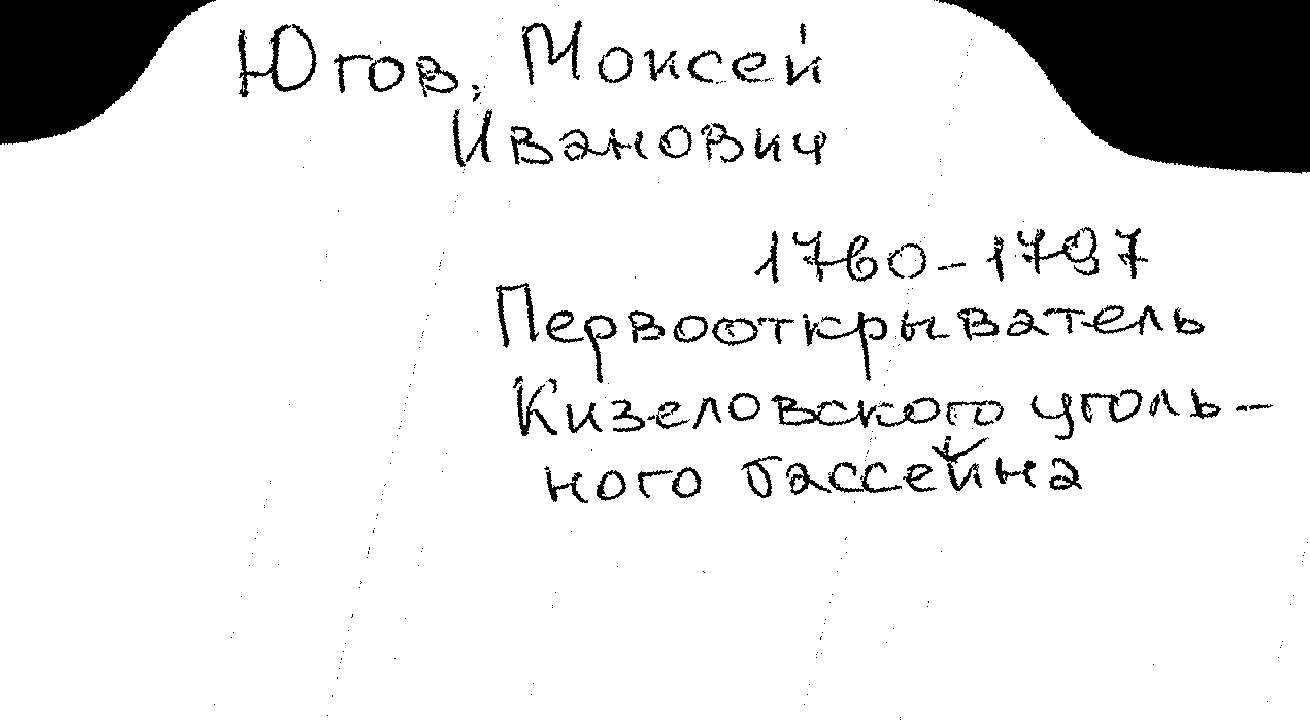 Югов, Моисей
Иванович
1760-1797
Первооткрыватель
Кизеловского уголь-
ного бассейна